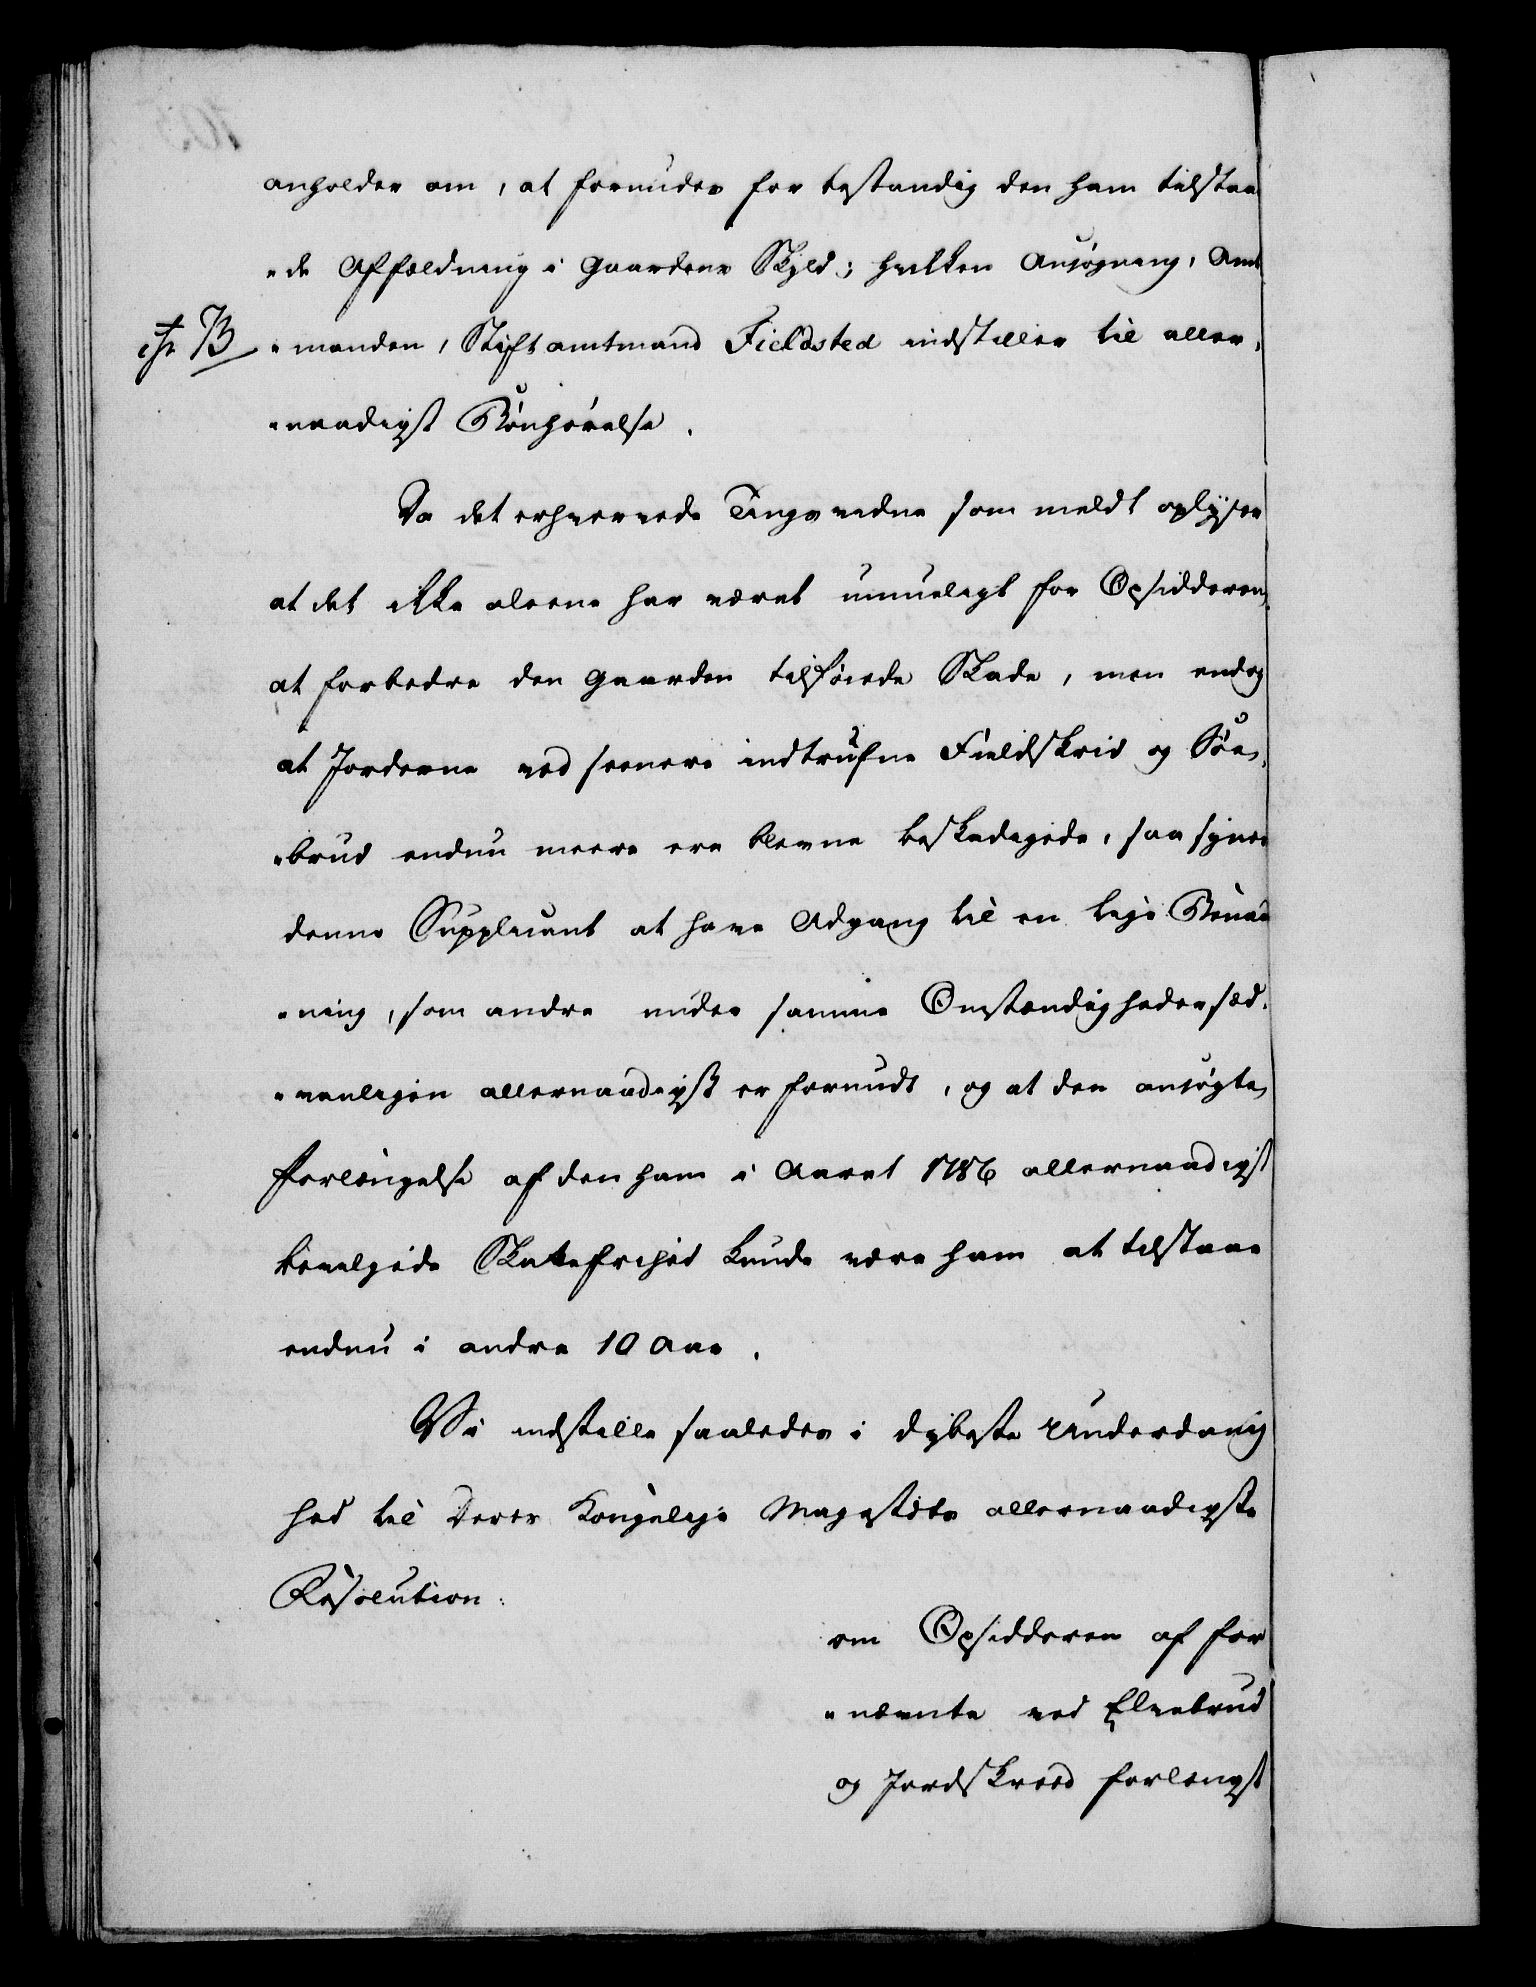 anholder om, at forundes for bestandig den ham tilstaa
"de Affældning i Gaardens Skyld; hvilken Ansøgning, Amt
cfr B "manden, Stiftamtmand Fieldsted indstiller til aller"
"naadigst Bønhørelse.
Da det erhvervede Tingsvidne som meldt oplyser
at det ikke aleene har været umueligt for Opsidderen,
at forbedre den Gaarden tilføiede Skade, men endog
at Jorderne ved seenere indtrufne Fieldskrid og Søe"
"brud endnu meere ere blevne beskadigede, saa synes
denne Supplicant at have Adgang til en lige Benaad
"ning, som andre under samme Omstændigheder sæd"
"vanligen allernaadigst er forundt, og at den ansøgte
forlængelse af den ham i Aaret 1786 allernaadigst
bevilgede Skattefrihed kunde være ham at tilstaae
endnu i andre 10 Aar.
Vi indstille saaledes i dybeste Underdanig
hed til Deres Kongelige Majestæts allernaadigste
Resolution:
om Opsidderen af for
"nævnte ved Elvebrud
og Jordskreed forlengst